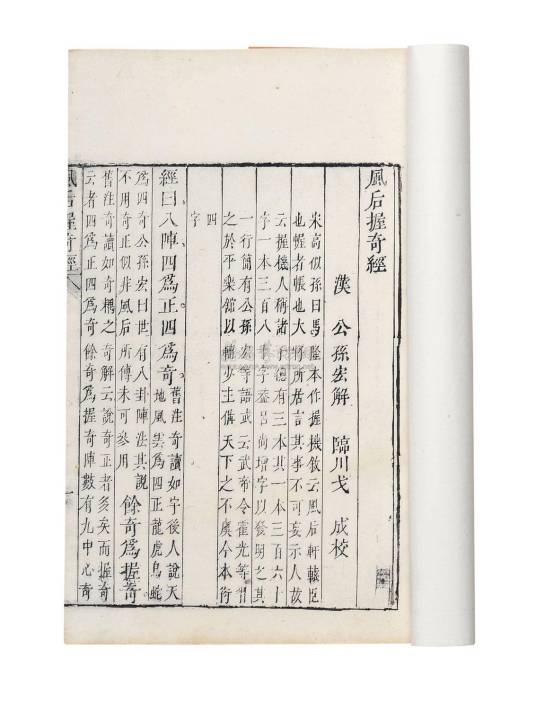 風后握奇經
漢 公孫宏解 臨川戈 成校
宋高似孫曰馬隆本作握機敘云風后軒轅臣
也幄者帳也大將所居言其事不可妄示人故
云握機人稱諸子總有三本其一本三百六十
字一本三百八十字蓋呂尚增字以發明之其
一行簡有公孫宏等語武云武帝令霍光等習
之於平樂館以輔少主備天下之不虞今本衍
四字
經曰八陣四爲正四爲奇舊注奇讀如字後人說天
地風雲爲四正龍虎鳥蛇
爲四奇公孫宏曰世有八卦陣法其說
不用奇正似非風后所傳未可參用餘奇爲握奇
舊注奇讀如奇耦之奇解云說奇正者多矣而握奇
云者四爲正四爲奇餘奇爲握奇陣數有九中心奇
風后握奇經
一